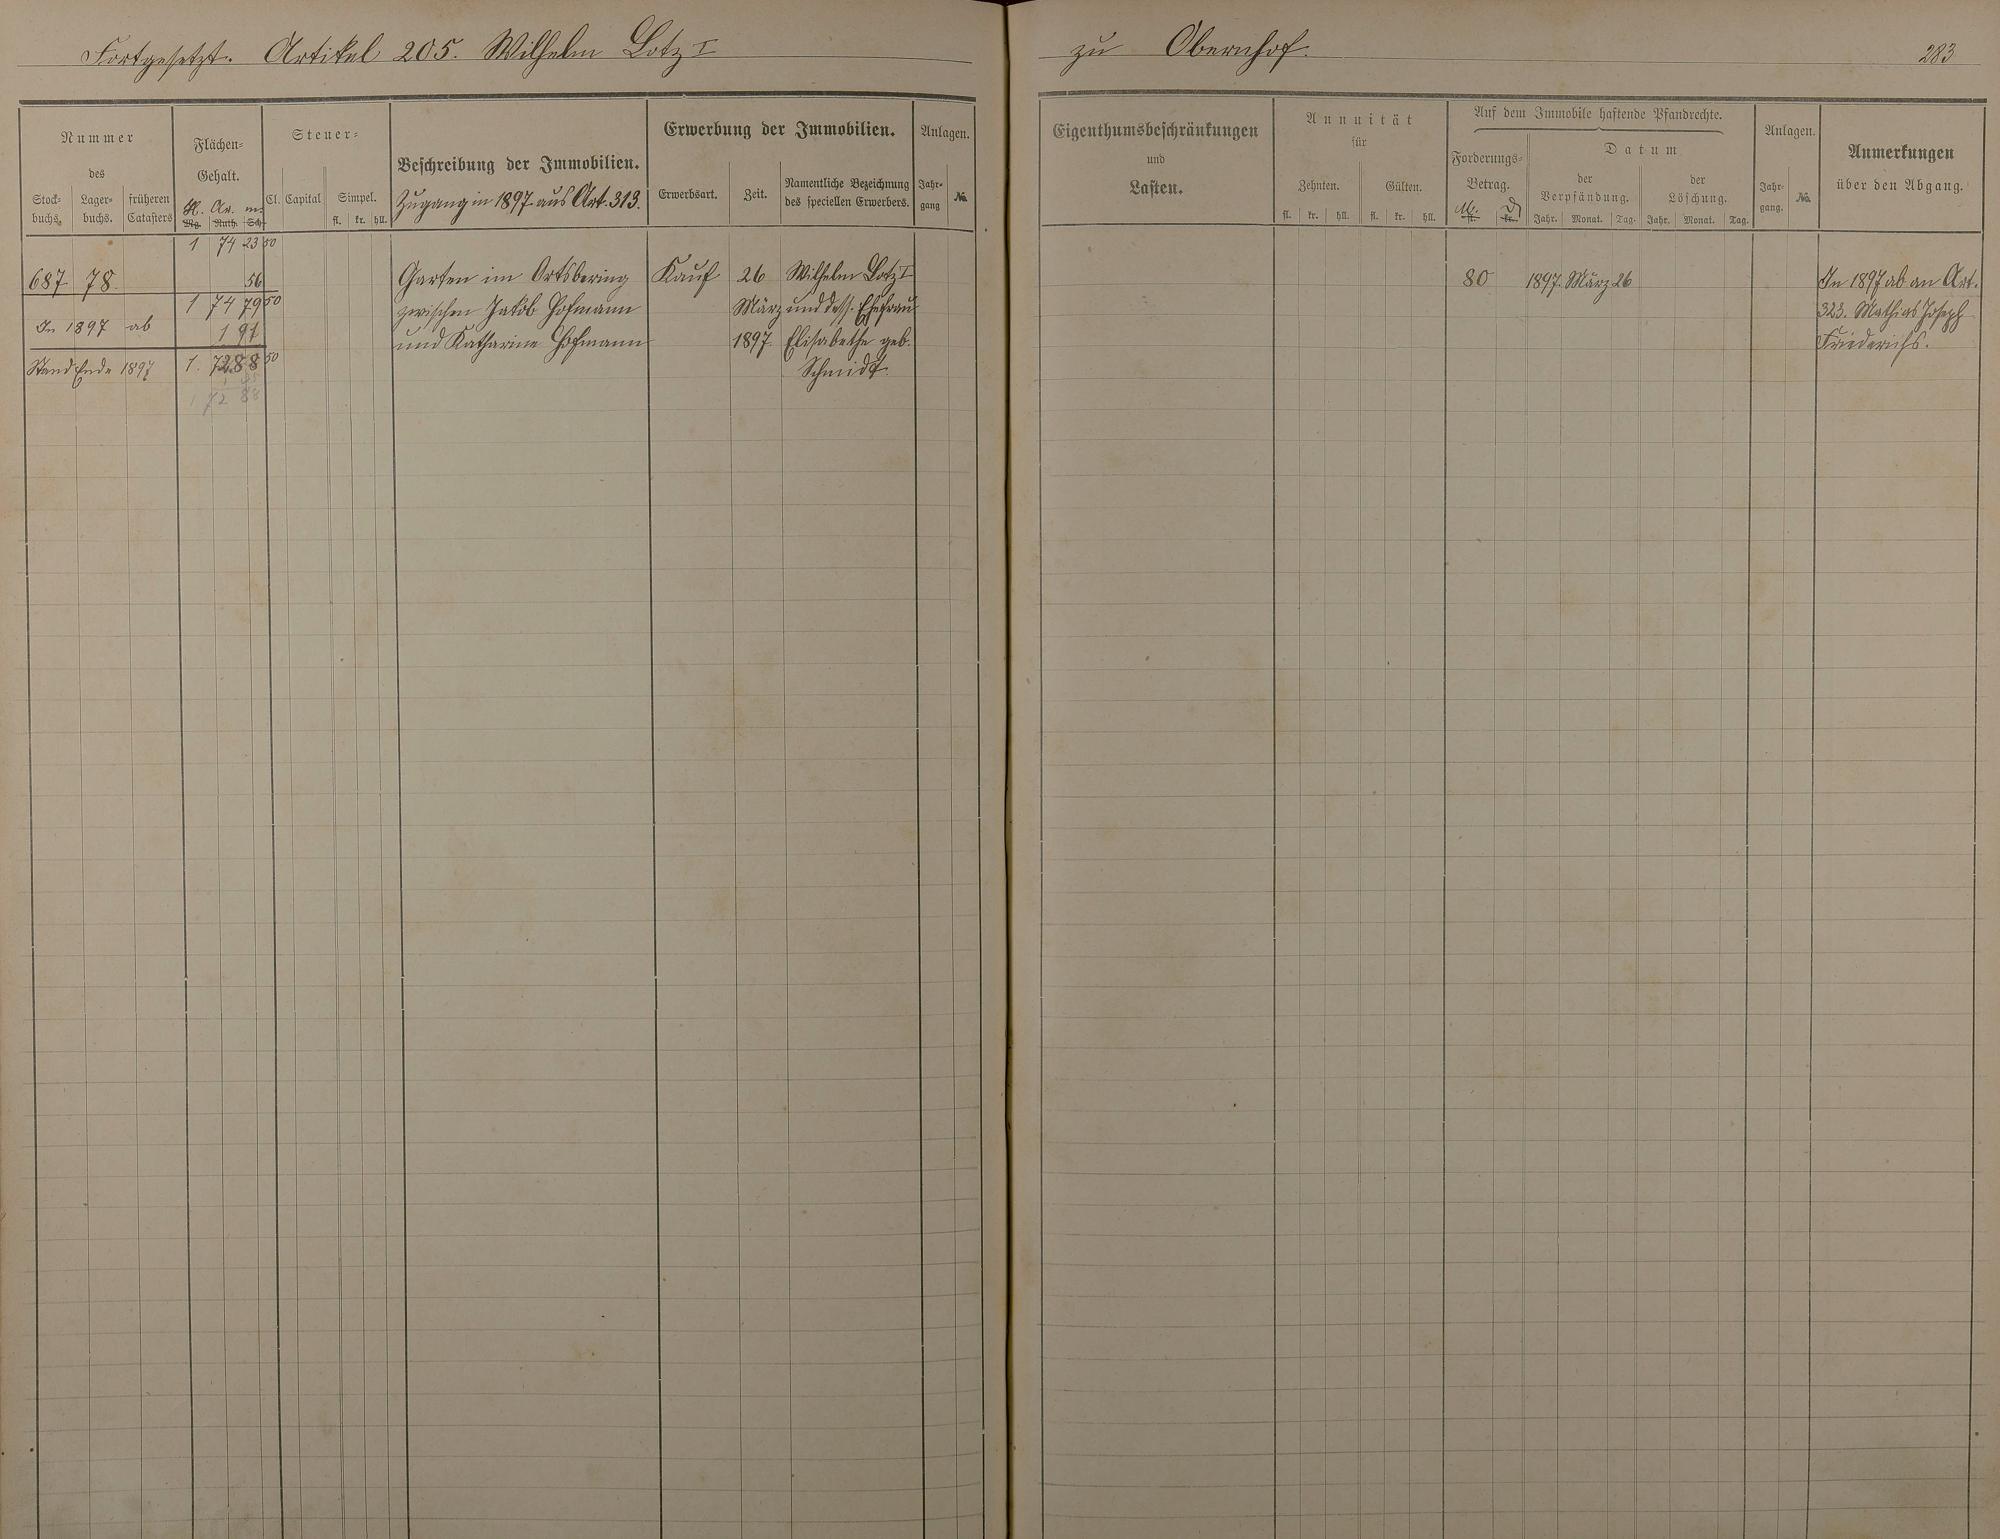 Fortgesetzt. Artikel 205. Wilhelm Lotz I
zu Obernhof.
283
Nummer
des
Stock-
buchs.
Lager-
buchs.
früheren
Catasters
Flächen-
Gehalt.
H. Ar. m.
Mg. Ruth. Sch.
Steuer-
Cl. Capital Simpel.
fl. kr. hll.
Beschreibung der Immobilien.
Zugang in 1897 aus Art. 313.
Erwerbung der Immobilien.
Erwerbsart.
Zeit.
Namentliche Bezeichnung
des speciellen Erwerbers.
Anlagen.
Jahr-
gang
No.
Eigenthumsbeschränkungen
und
Lasten.
Annuität
für
Zehnten. Gülten.
fl. kr. hll. fl. kr. hll.
Auf dem Immobile haftende Pfandrechte.
Forderungs-
Betrag.
M.
fl. kr.
Datum
der
Verpfändung.
der
Löschung.
Jahr. Monat. Tag. Jahr. Monat. Tag.
Anlagen.
Jahr-
gang.
No.
Anmerkungen
über den Abgang.
1 74 23 50
687 78. 56
1 74 79 50
In 1897 ab 1 91
Stand Ende 1897 1. 72 88 50
1 72 88
Garten im Ortsbering
zwischen Jakob Hofmann
und Katharine Hofmann
Kauf
26
März
1897
Wilhelm Lotz I
und dess. Ehefrau
Elisabethe geb.
Schmidt.
80 1897. März 26
In 1897 ab an Art.
323. Mathias Joseph
Friederichs.